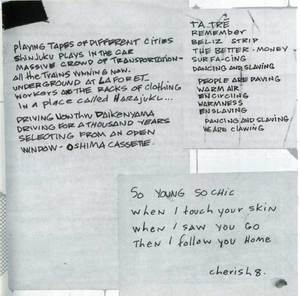 PLAYING TAPES OF DIFFERENT CITIES
SHINJUKU PLAYS IN THE CAR
MASSIVE CROWD OF TRANSPORTATION-
All the TRAINS RUNNING NOW.
UNDERGROUND AT LAFORET
WORKERS ON THE RACKS OF CLOTHING
IN a place called HARAJUKU...
DRIVING NOW THRU DAIKENYAMA
DRIVING FOR A THOUSAND YEARS
SELECTING FROM AN OPEN
WINDOW- OSHIMA CASSETTE.
TA TRĒ
REMEMBER
BELIZ STRIP
THE BETTER-MONEY
SURFACING
DANCING AND SLAVING
PEOPLE ARE PAVING
WARM AIR
ENCIRCLING
WARMNESS
ENSLAVING
DANCING AND SLAVING
WE ARE CLAWING
SO YOUNG SO CHIC
When I touch your SKIN
when I SAW YOU GO
Then I follow you Home
cherish 8.